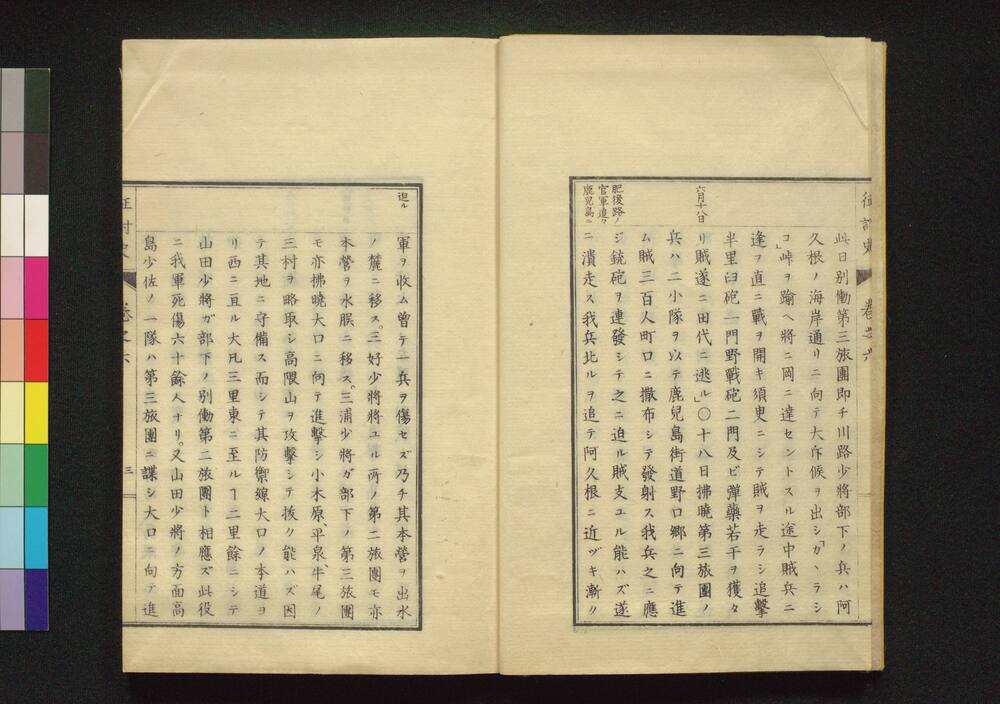 征討史
巻之六
此日別働第三旅團即チ川路少將部下ノ兵ハ阿
久根ノ海岸通リニ向テ大斥候ヲ出シ「カヽラシ
コ」峠ヲ踰ヘ將ニ岡ニ達セントスル途中賊兵ニ
逢ヲ直ニ戰ヲ開キ須臾ニシテ賊ヲ走ラシ追擊
半里臼砲一門野戰砲二門及ビ彈藥若干ヲ獲タ
六月十八日
リ賊遂ニ田代ニ逃ル」〇十八日拂曉第三旅團ノ
兵ハ二小隊ヲ以テ鹿兒島街道野口郷ニ向テ進
ム賊三百人町口ニ撒布シテ發射ス我兵之ニ應
肥後路ノ
官軍進テ
鹿兒島ニ
ジ銃砲ヲ連發シテ之ニ迫ル賊支ユル能ハズ遂
ニ潰走ス我兵北ルヲ追テ阿久根ニ近ヅキ漸ク
迫ル
軍ヲ收ム曾テ一兵ヲ傷セズ乃チ其本營ヲ出水
ノ麓ニ移ス。三好少將將ユル所ノ第二旅團モ亦
本營ヲ水脵ニ移ス。三浦少將ガ部下ノ第三旅團
モ亦拂曉大口ニ向テ進擊シ小木原、平泉、牛尾ノ
三村ヲ略取シ高隈山ヲ攻擊シテ拔ク能ハズ因
テ其地ニ守備ス而シテ其防禦線大口ノ本道ヨ
リ西ニ亘ル大凡三里東ニ至ルヿ二里餘ニシテ
山田少將ガ部下ノ別働第二旅團ト相應ズ此役
ニ我軍死傷六十餘人ナリ。又山田少將ノ方面高
島少佐ノ一隊ハ第三旅團ニ諜シ大口ニ向テ進
征討史
巻之六
三